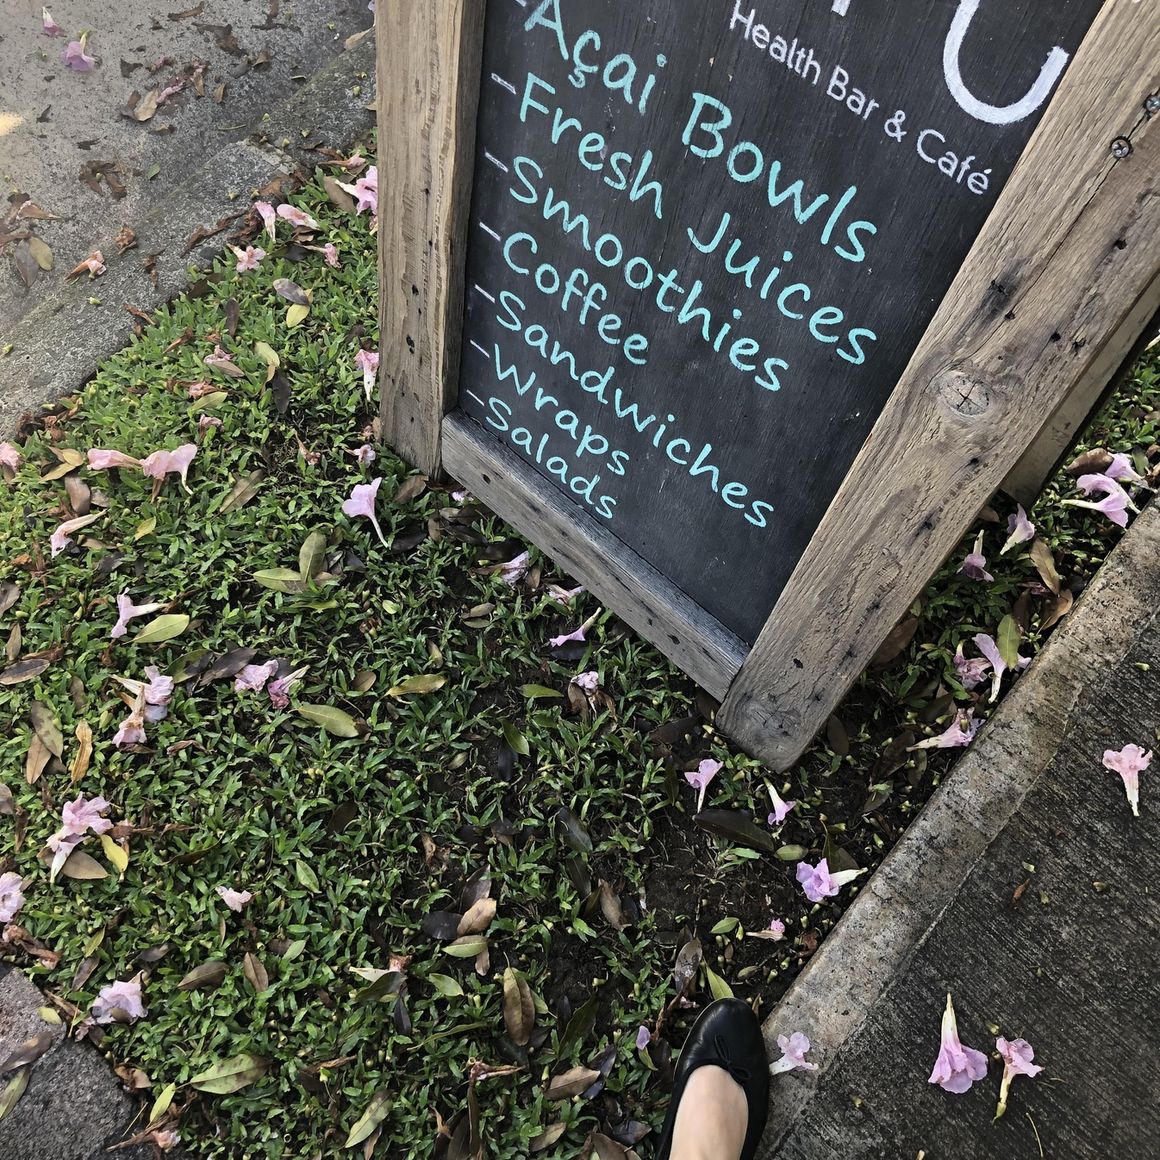 Health Bar & Café
-Açai Bowls
-Fresh Juices
-Smoothies
-Coffee
-Sandwiches
-Wraps
-Salads